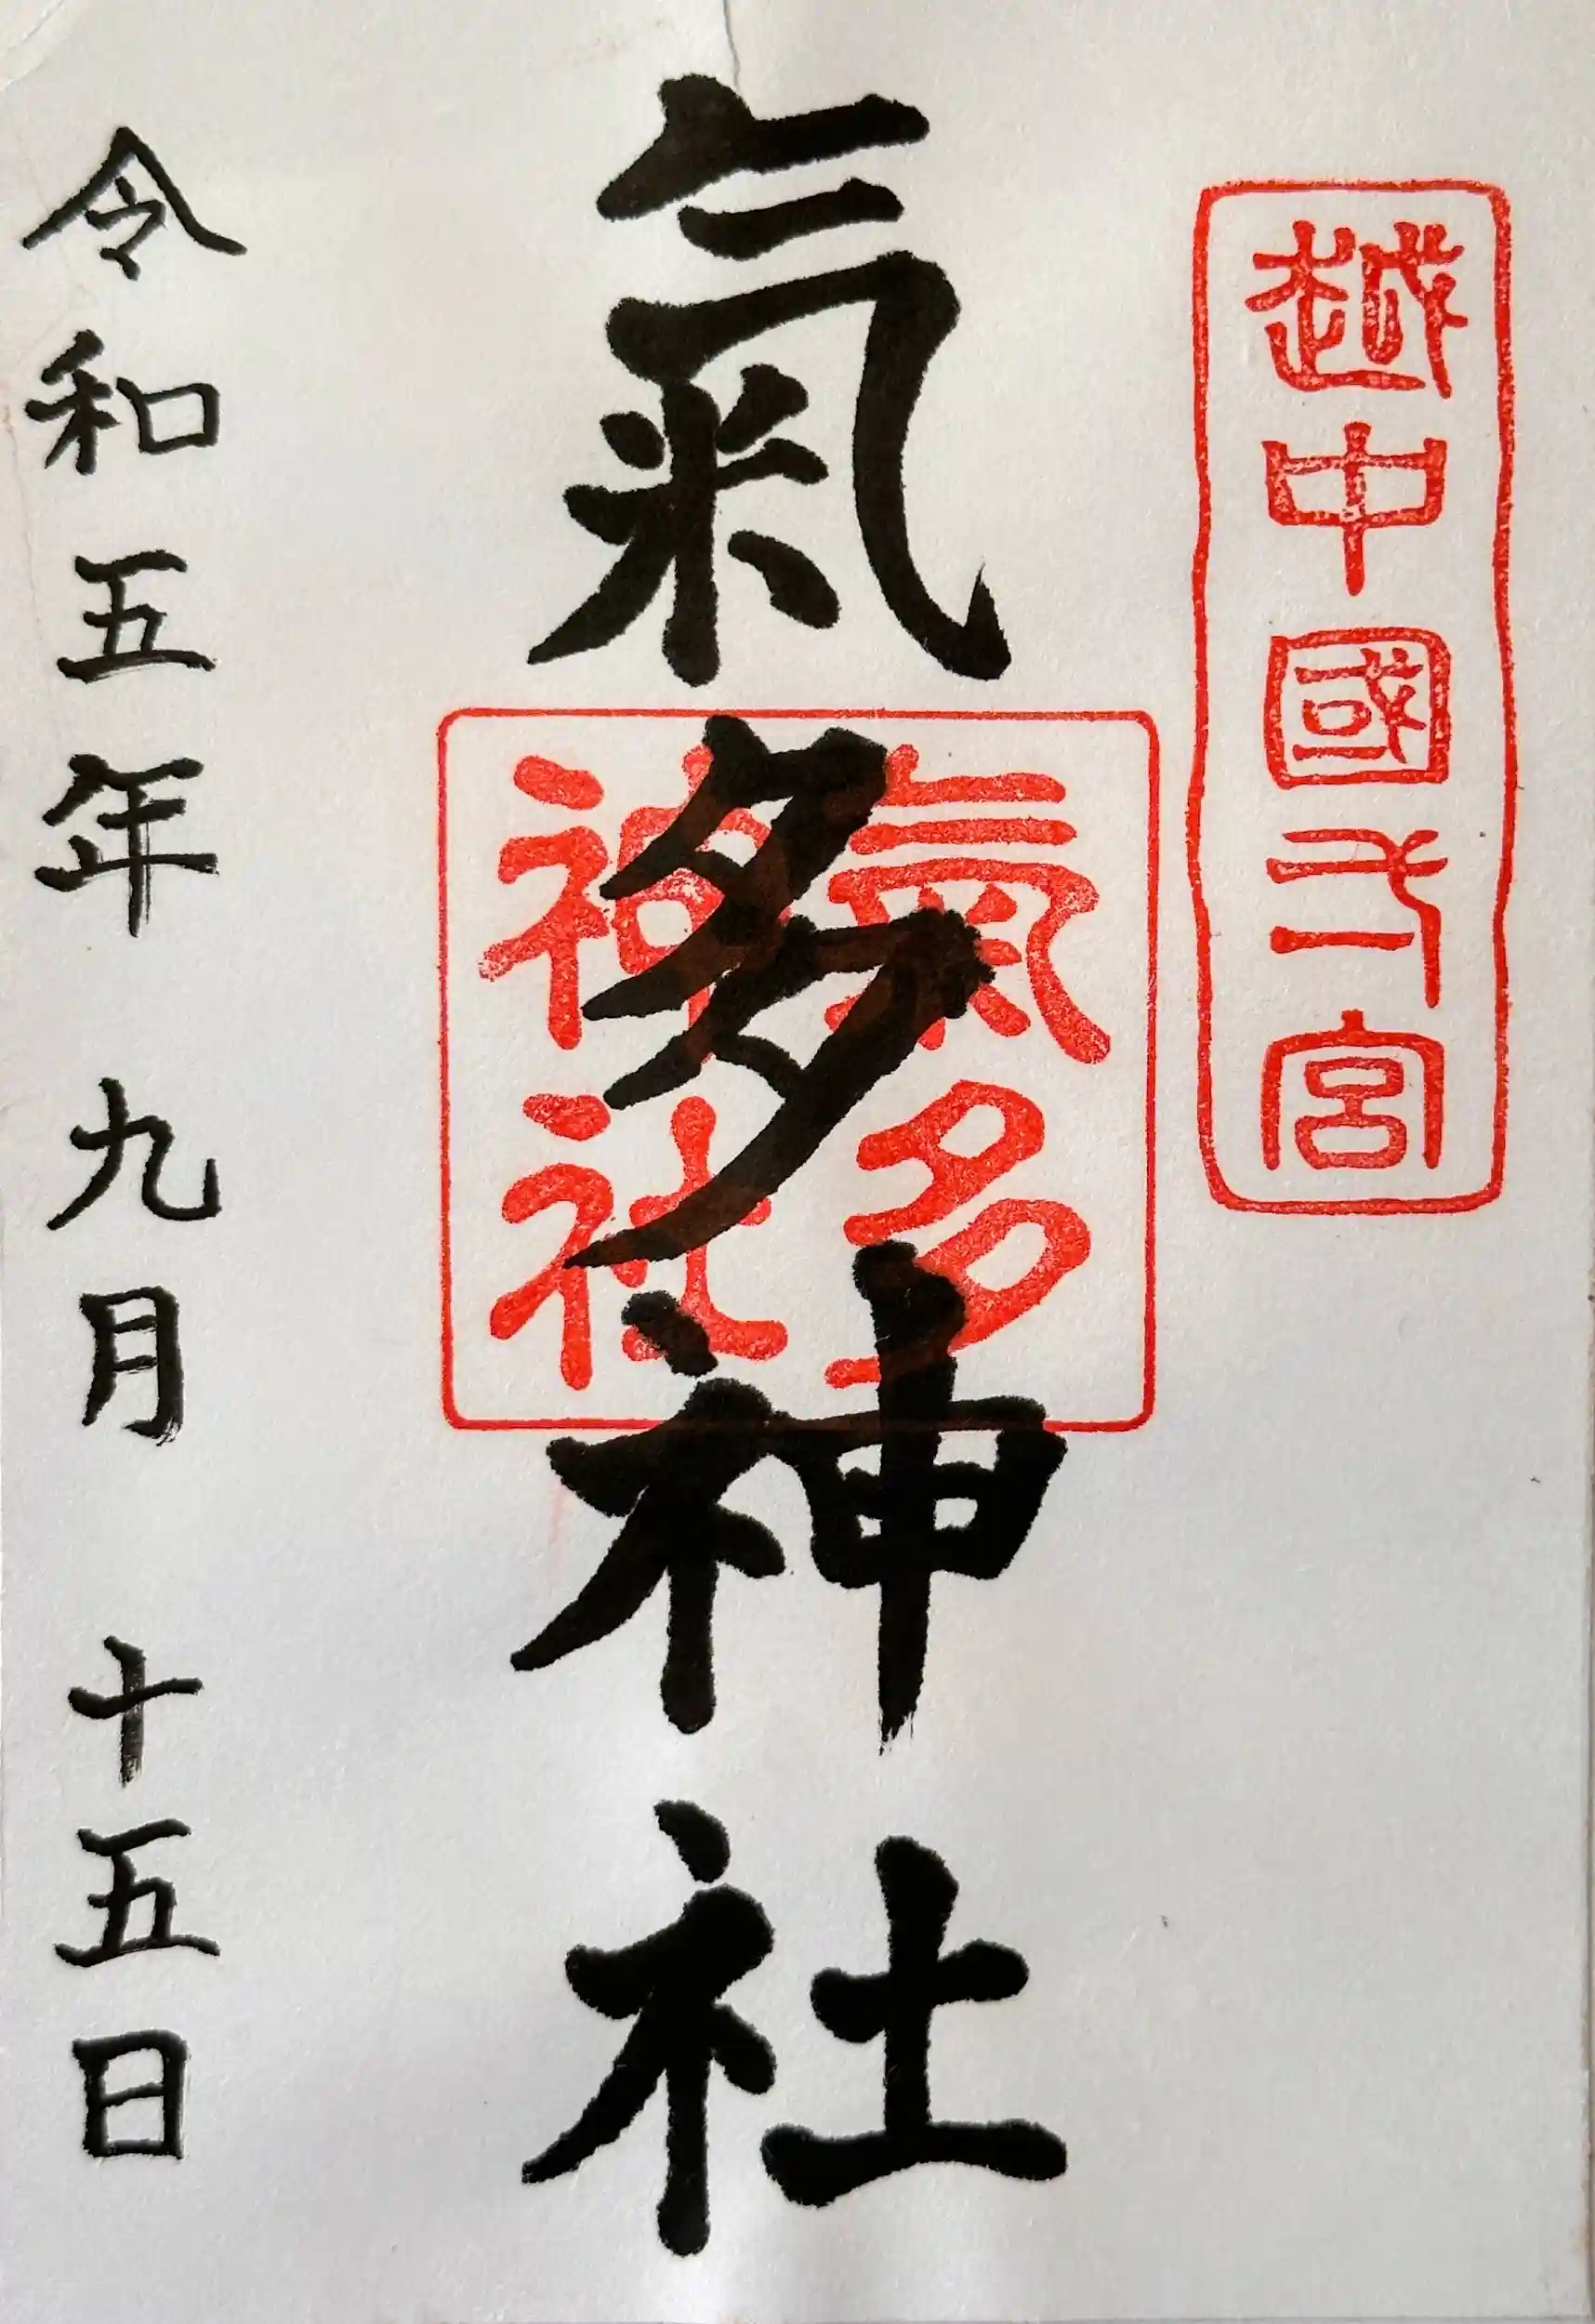 越中國弌宮
氣多神社
氣多
神社
令和五年 九月 十五日